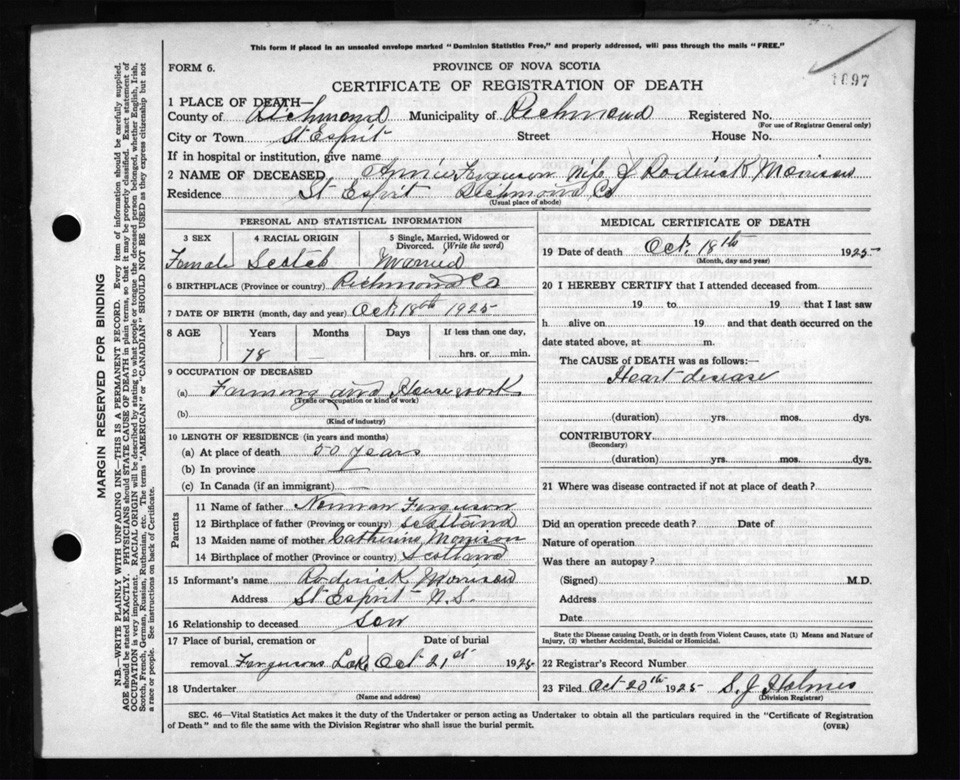 This form if placed in an unsealed envelope marked "Dominion Statistics Free," and properly addressed, will pass through the mails "FREE."
FORM 6.
PROVINCE OF NOVA SCOTIA
1097
CERTIFICATE OF REGISTRATION OF DEATH
1 PLACE OF DEATH—
County of Richmond Municipality of Richmond Registered No.
(For use of Registrar General only)
City or Town St Esprit Street House No.
If in hospital or institution, give name
2 NAME OF DECEASED Annie Ferguson Wife of Roderick Morrison
Residence St Esprit Richmond Co
(Usual place of abode)
PERSONAL AND STATISTICAL INFORMATION
3 SEX 4 RACIAL ORIGIN 5 Single, Married, Widowed or Divorced. (Write the word)
Female Scotch Married
6 BIRTHPLACE (Province or country) Richmond Co
7 DATE OF BIRTH (month, day and year) Oct 18th 1925
8 AGE Years Months Days If less than one day,
78 — hrs. or min.
9 OCCUPATION OF DECEASED
(a) Farming and House work
(Trade or occupation or kind of work)
(b)
(Kind of industry)
10 LENGTH OF RESIDENCE (in years and months)
(a) At place of death 50 years
(b) In province —
(c) In Canada (if an immigrant) —
Parents
11 Name of father Norman Ferguson
12 Birthplace of father (Province or country) Scotland
13 Maiden name of mother Catherine Morrison
14 Birthplace of mother (Province or country) Scotland
15 Informant's name Roderick Morrison
Address St Esprit N.S.
16 Relationship to deceased Son
17 Place of burial, cremation or Date of burial
removal Fergusons Lake, Oct 21st 1925
18 Undertaker
(Name and address)
MEDICAL CERTIFICATE OF DEATH
19 Date of death Oct 18th 1925
(Month, day and year)
20 I HEREBY CERTIFY that I attended deceased from
19 to 19 that I last saw
h alive on 19 and that death occurred on the
date stated above, at m.
The CAUSE of DEATH was as follows:—
Heart disease
(duration) yrs. mos. dys.
CONTRIBUTORY
(Secondary)
(duration) yrs. mos. dys.
21 Where was disease contracted if not at place of death?
Did an operation precede death? Date of
Nature of operation
Was there an autopsy?
(Signed) M.D.
Address
Date
State the Disease causing Death, or in death from Violent Causes, state (1) Means and Nature of Injury, (2) whether Accidental, Suicidal or Homicidal.
22 Registrar's Record Number
23 Filed Oct 20th 1925 S. J. Holmes
(Division Registrar)
SEC. 46—Vital Statistics Act makes it the duty of the Undertaker or person acting as Undertaker to obtain all the particulars required in the "Certificate of Registration
of Death" and to file the same with the Division Registrar who shall issue the burial permit. (OVER)
MARGIN RESERVED FOR BINDING
N.B.—WRITE PLAINLY WITH UNFADING INK—THIS IS A PERMANENT RECORD. Every item of information should be carefully supplied.
AGE should be stated EXACTLY. PHYSICIANS should STATE CAUSE OF DEATH in plain terms, so that it may be properly classified. Exact statement of
OCCUPATION is very important. RACIAL ORIGIN will be described by stating to what people or tongue the deceased person belonged, whether English, Irish,
Scotch, French, German, Russian, Ruthenian, etc. The terms "AMERICAN" or "CANADIAN" SHOULD NOT BE USED as they express citizenship but not
a race or people. See instructions on back of Certificate.